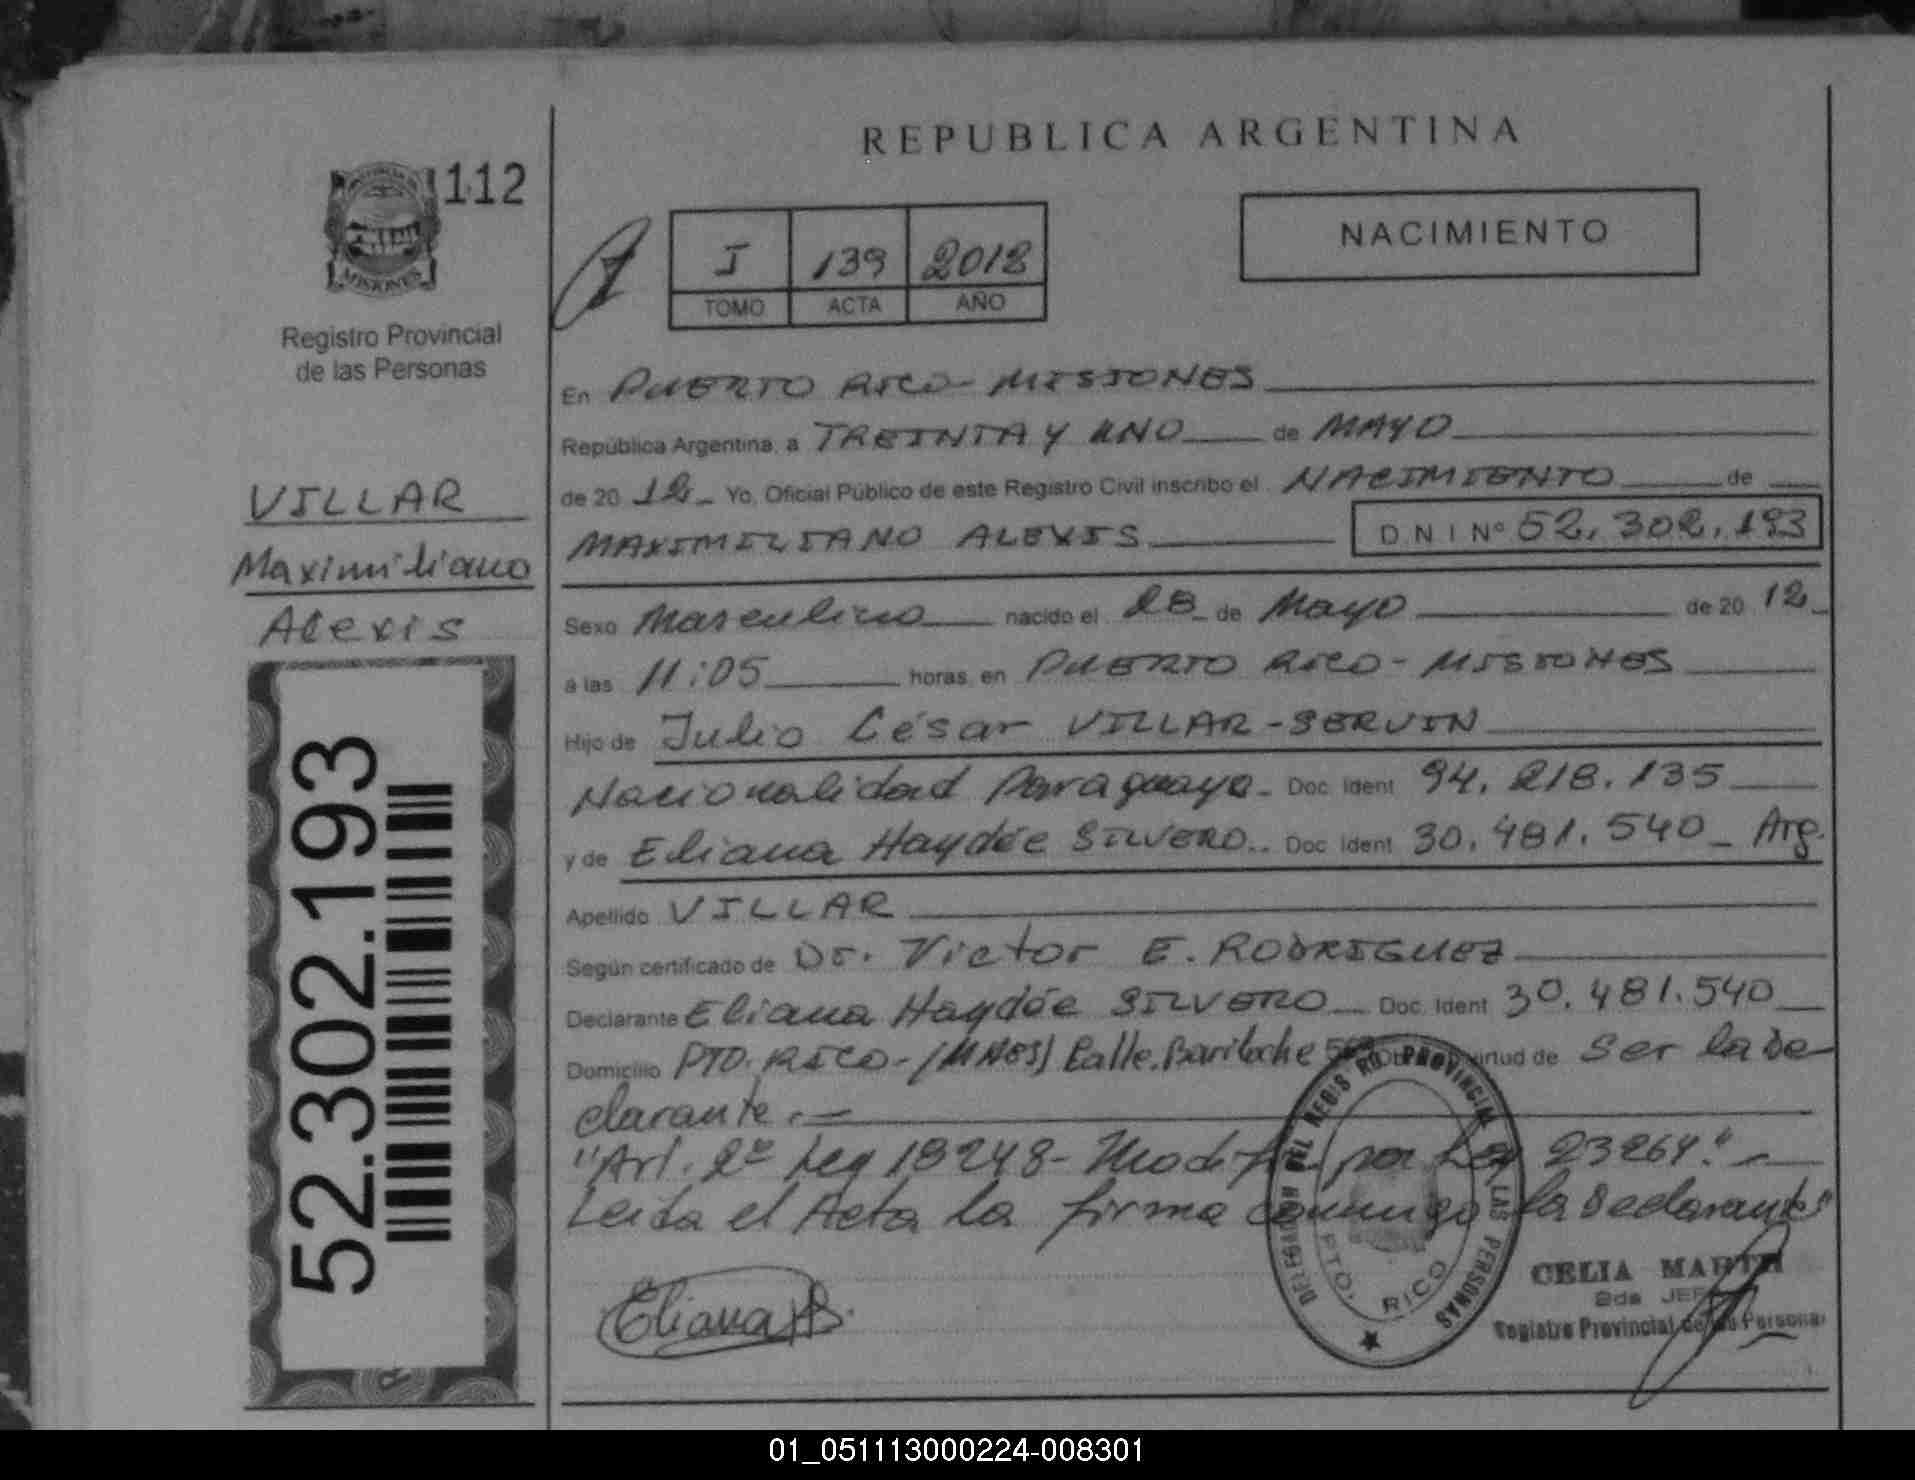 REPUBLICA ARGENTINA
112
MISIONES
Registro Provincial
de las Personas
VILLAR
Maximiliano
Alexis
52.302.193
I 139 2012
TOMO ACTA AÑO
NACIMIENTO
En PUERTO RICO - MISIONES
República Argentina, a TREINTA Y UNO de MAYO
de 20 12 Yo, Oficial Público de este Registro Civil inscribo el NACIMIENTO de
MAXIMILIANO ALEXIS DNI Nº 52.302.193
Sexo Masculino nacido el 28 de Mayo de 20 12
a las 11:05 horas, en PUERTO RICO - MISIONES
Hijo de Julio César VILLAR - SERVIN
Nacionalidad Paraguaya - Doc. Ident. 94.218.135
y de Eliana Haydée SILVERO Doc. Ident. 30.481.540 - Arg.
Apellido VILLAR
Según certificado de Dr. Victor E. RODRIGUEZ
Declarante Eliana Haydée SILVERO Doc. Ident. 30.481.540
Domicilio PTO. RICO - (MNES) Calle. Bariloche virtud de Ser la De-
clarante. -
"Art. 2º Ley 18248 - Modif. por Ley 23264." -
Leída el Acta la firma conmigo la Declarante
Eliana
DELEGACION DEL REGISTRO PROVINCIAL DE LAS PERSONAS
PTO. RICO
CELIA
2da JEFE
Registro Provincial de las Personas
01_051113000224-008301